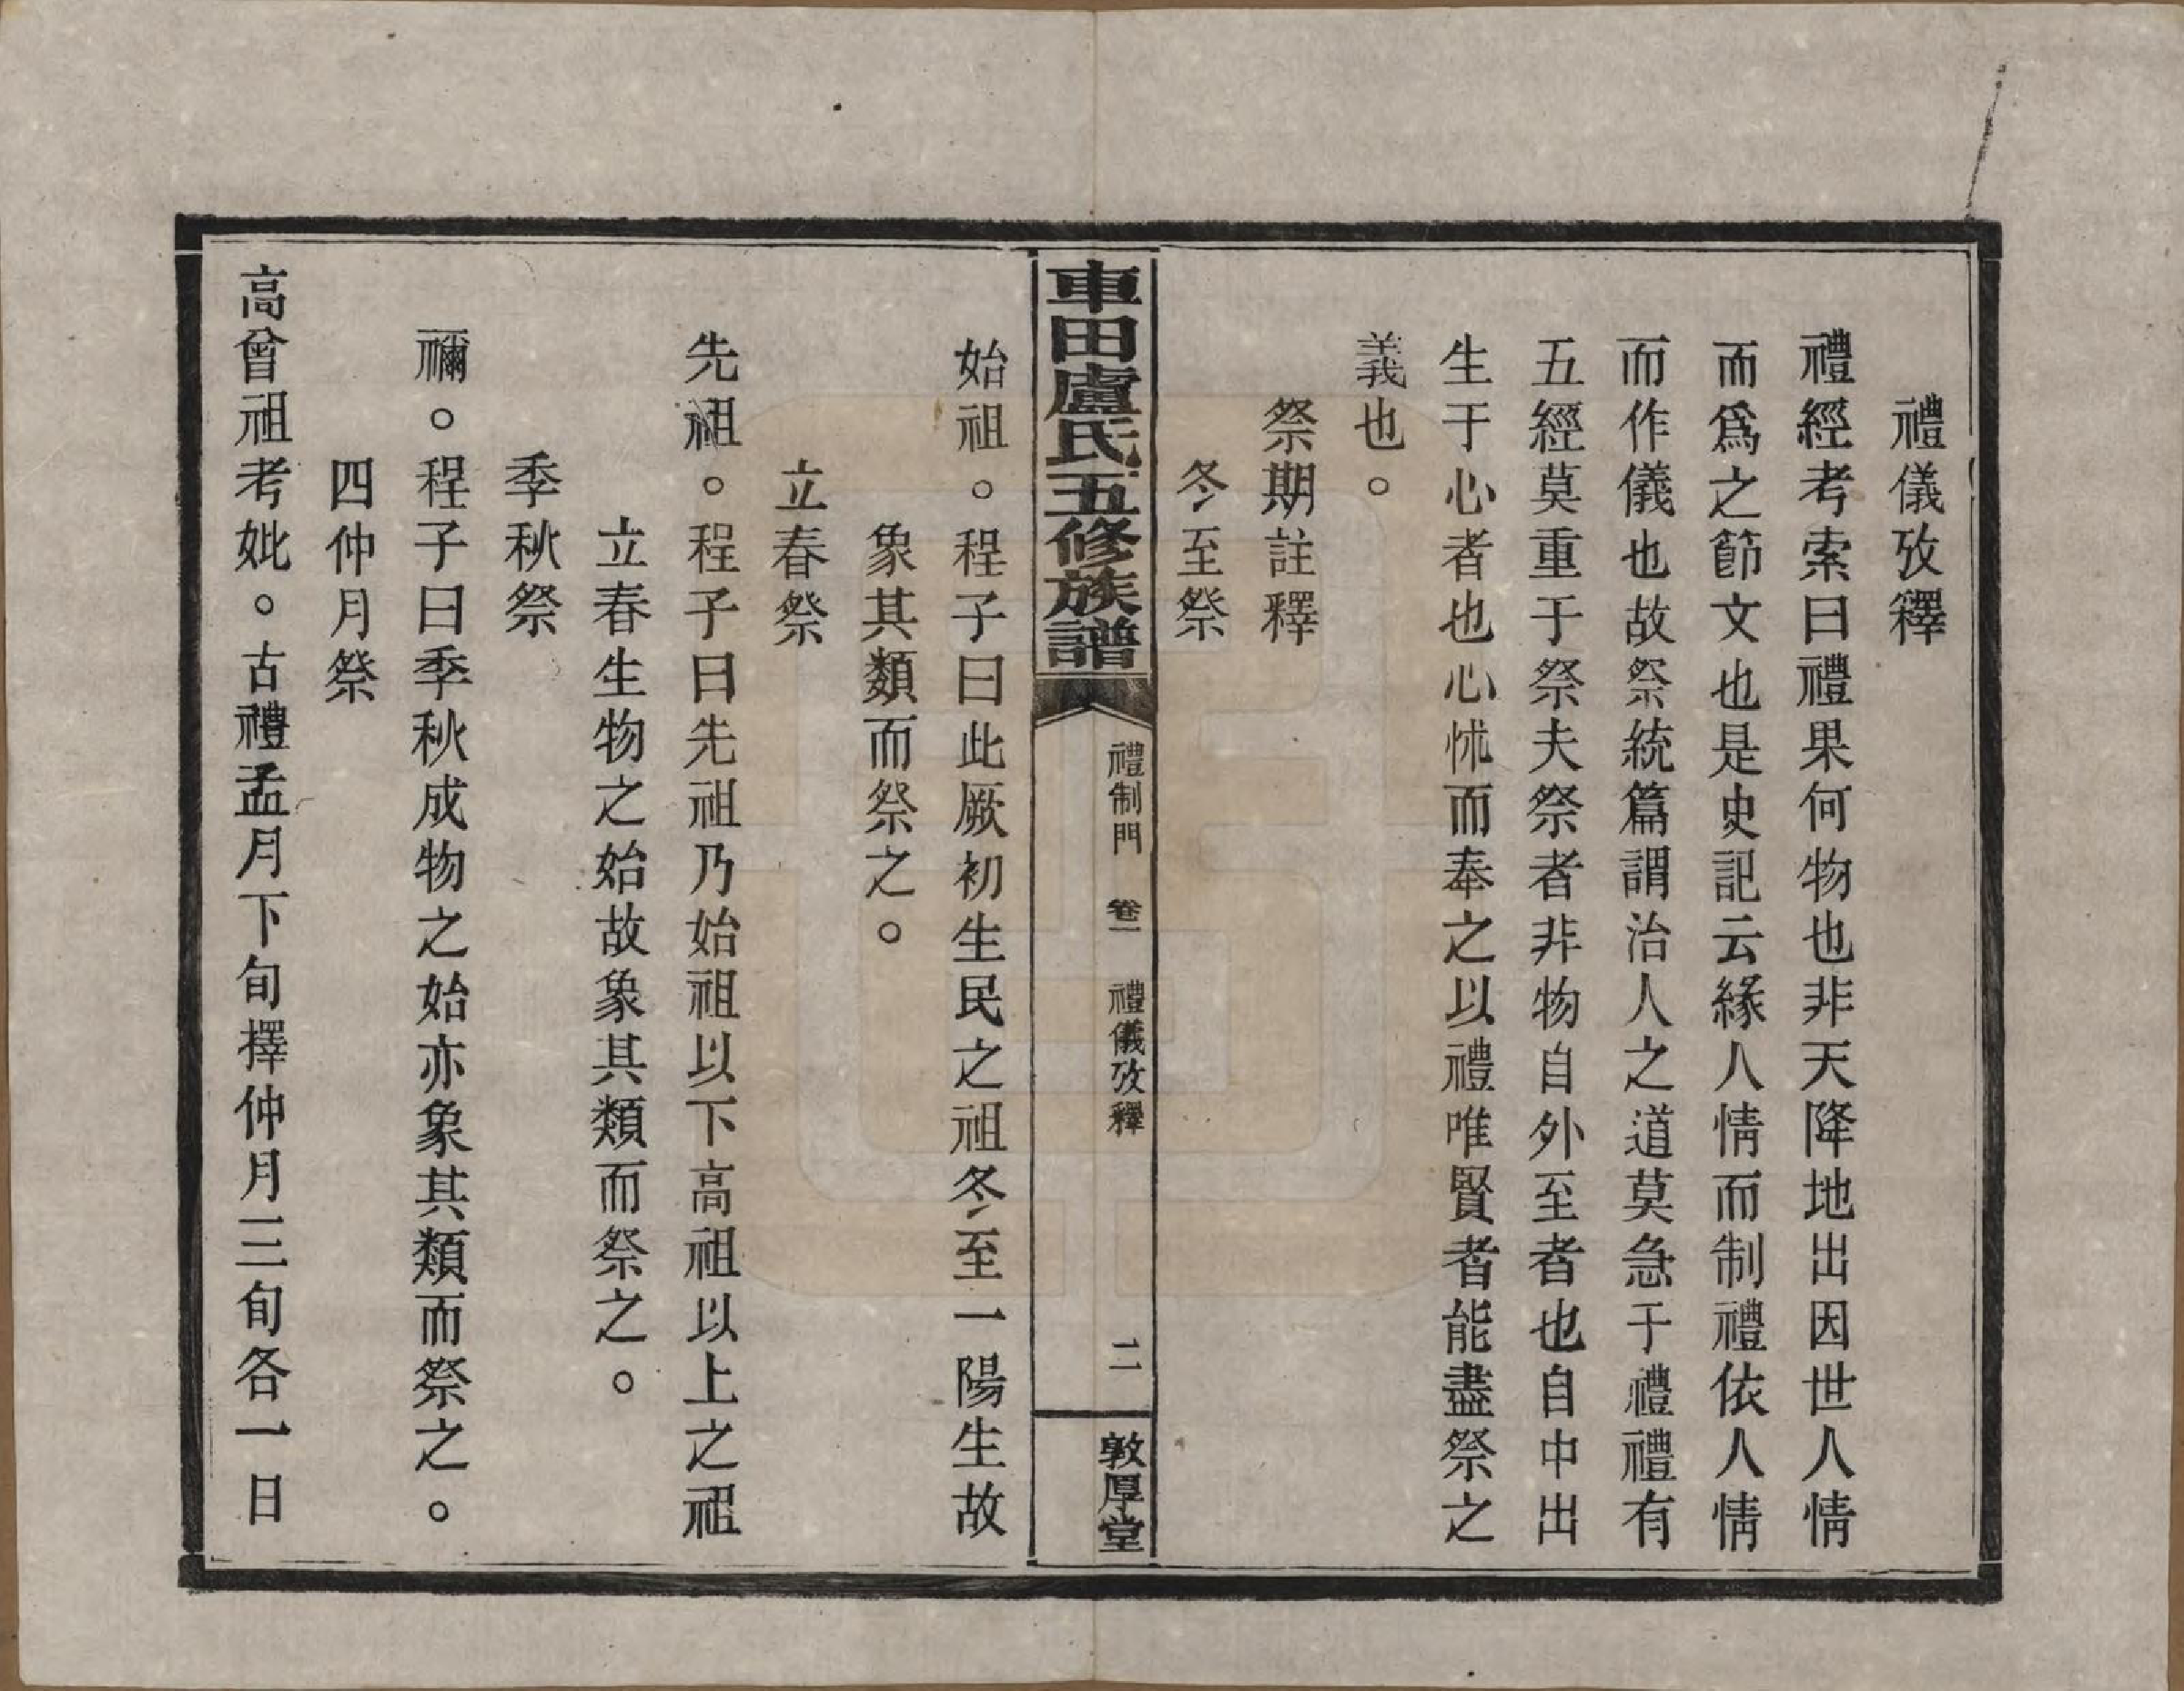 禮儀攷釋
禮經考索曰禮果何物也非天降地出因世人情
而爲之節文也是史記云緣人情而制禮依人情
而作儀也故祭統篇謂治人之道莫急于禮禮有
五經莫重于祭夫祭者非物自外至者也自中出
生于心者也心怵而奉之以禮唯賢者能盡祭之
義也。
祭期註釋
冬至祭
車田盧氏五修族譜
禮制門　卷一　禮儀攷釋
二
敦厚堂
始祖。程子曰此厥初生民之祖冬至一陽生故
象其類而祭之。
立春祭
先祖。程子曰先祖乃始祖以下高祖以上之祖
立春生物之始故象其類而祭之。
季秋祭
禰。程子曰季秋成物之始亦象其類而祭之。
四仲月祭
高曾祖考妣。古禮孟月下旬擇仲月三旬各一日